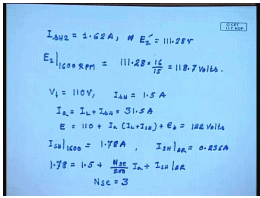 I_SH2 = 1.62A, E_2' = 111.28V
© CET
I.I.T. KGP
E_2|1600 RPM = 111.28 × 16/15 = 118.7 Volts.
V_t = 110V, I_SH = 1.5 A
I_a = I_L + I_SH = 31.5 A
E = 110 + I_a (r_a + r_se) + e_b = 122 Volts
I_SH|1600 = 1.78A, I_SH|AR = 0.256A
1.78 = 1.5 + Nse/200 I_a - I_SH|AR
Nse = 3